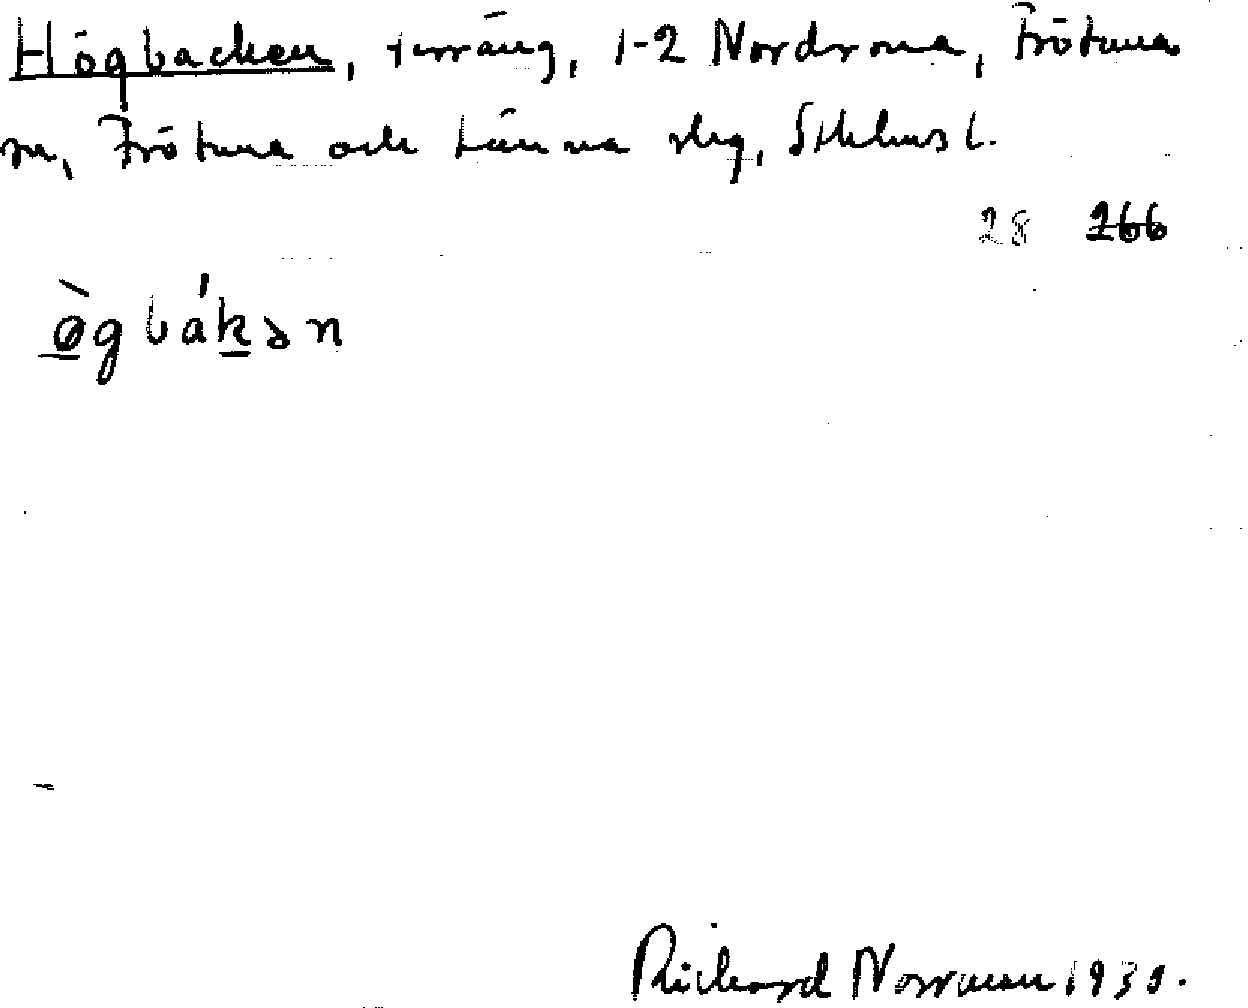 Högbacken, terräng, 1-2 Nordrona, Frötuna
sn, Frötuna och Länna slg, Sthlms l.
28 266
ø̀gbákən
Richard Norrman 1939.